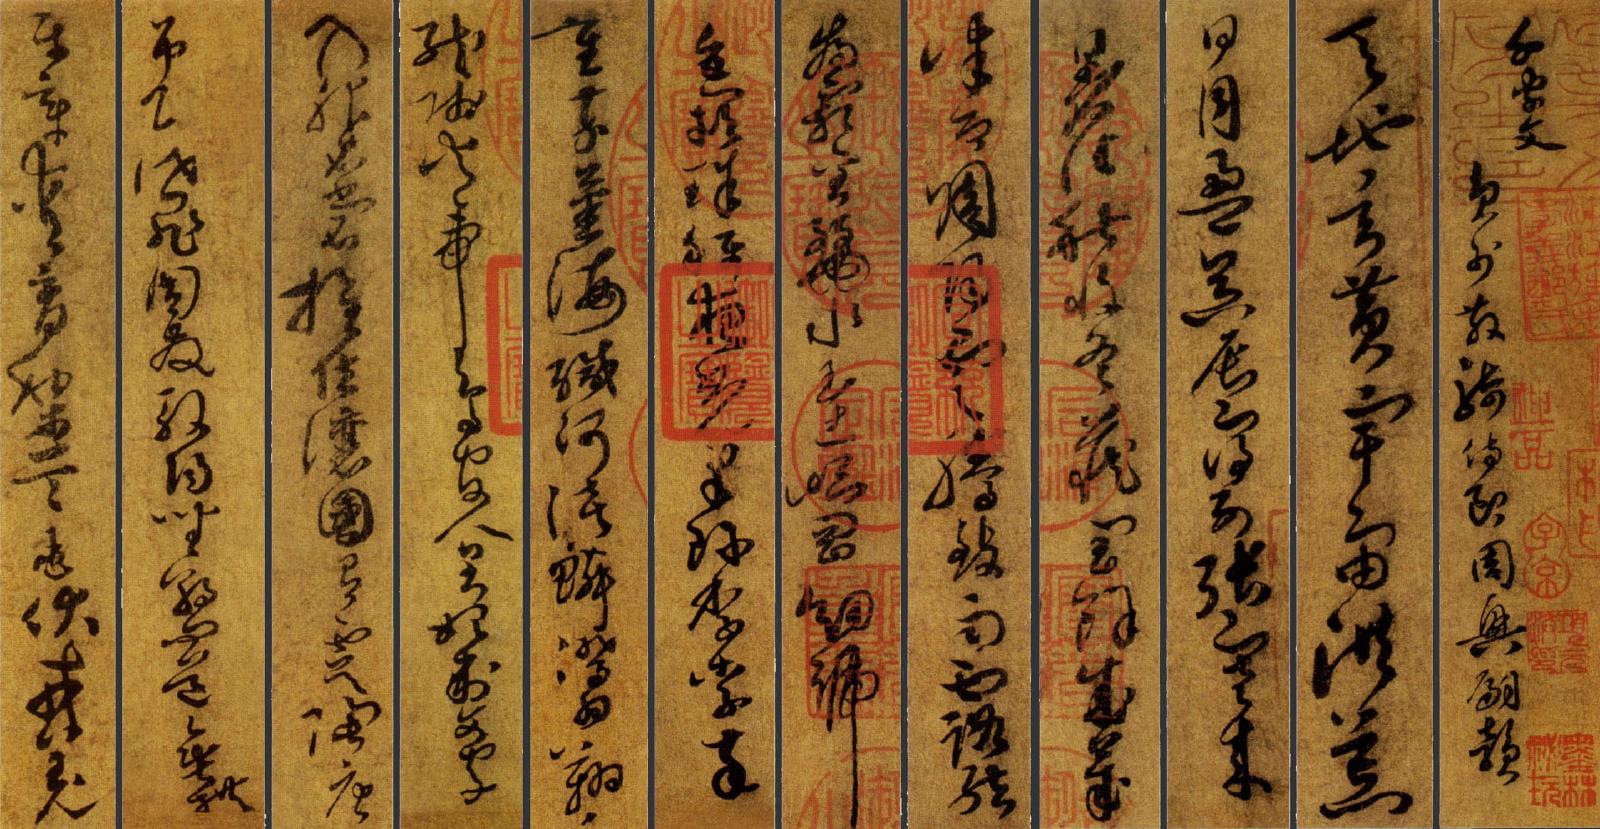 千字文 員外散騎侍郎周興嗣韻
天地玄黄宇宙洪荒
日月盈昃辰宿列張寒来
暑往秋收冬藏閏餘成歲
律召調陽雲騰致雨露結
為霜金生麗水玉出崐崗劍號
巨闕珠稱夜光菓珍李柰菜
重芥薑海鹹河淡鱗潛羽翔
龍師火帝鳥官人皇始制文字
乃服衣裳推位讓國有虞陶唐
弔民伐罪周發殷湯坐朝問道垂拱
平章愛育黎首臣伏戎羌